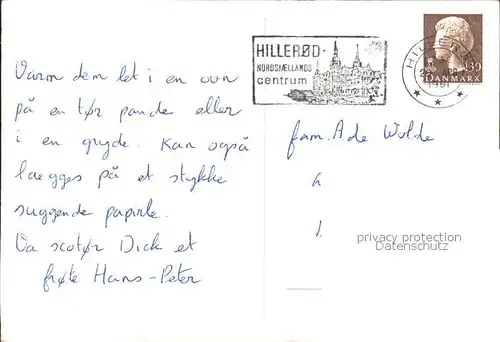 Varm dem let i en ovn
på en tør pande eller
i en gryde. Kan også
lægges på et stykke
suggende papirle.
Va scotør Dick et
frøte Hans-Peter
HILLERØD-
NORDSJÆLLANDS
centrum
HILLERØD
1981
130
DANMARK
fam. A de Wulde
privacy protection
Datenschutz